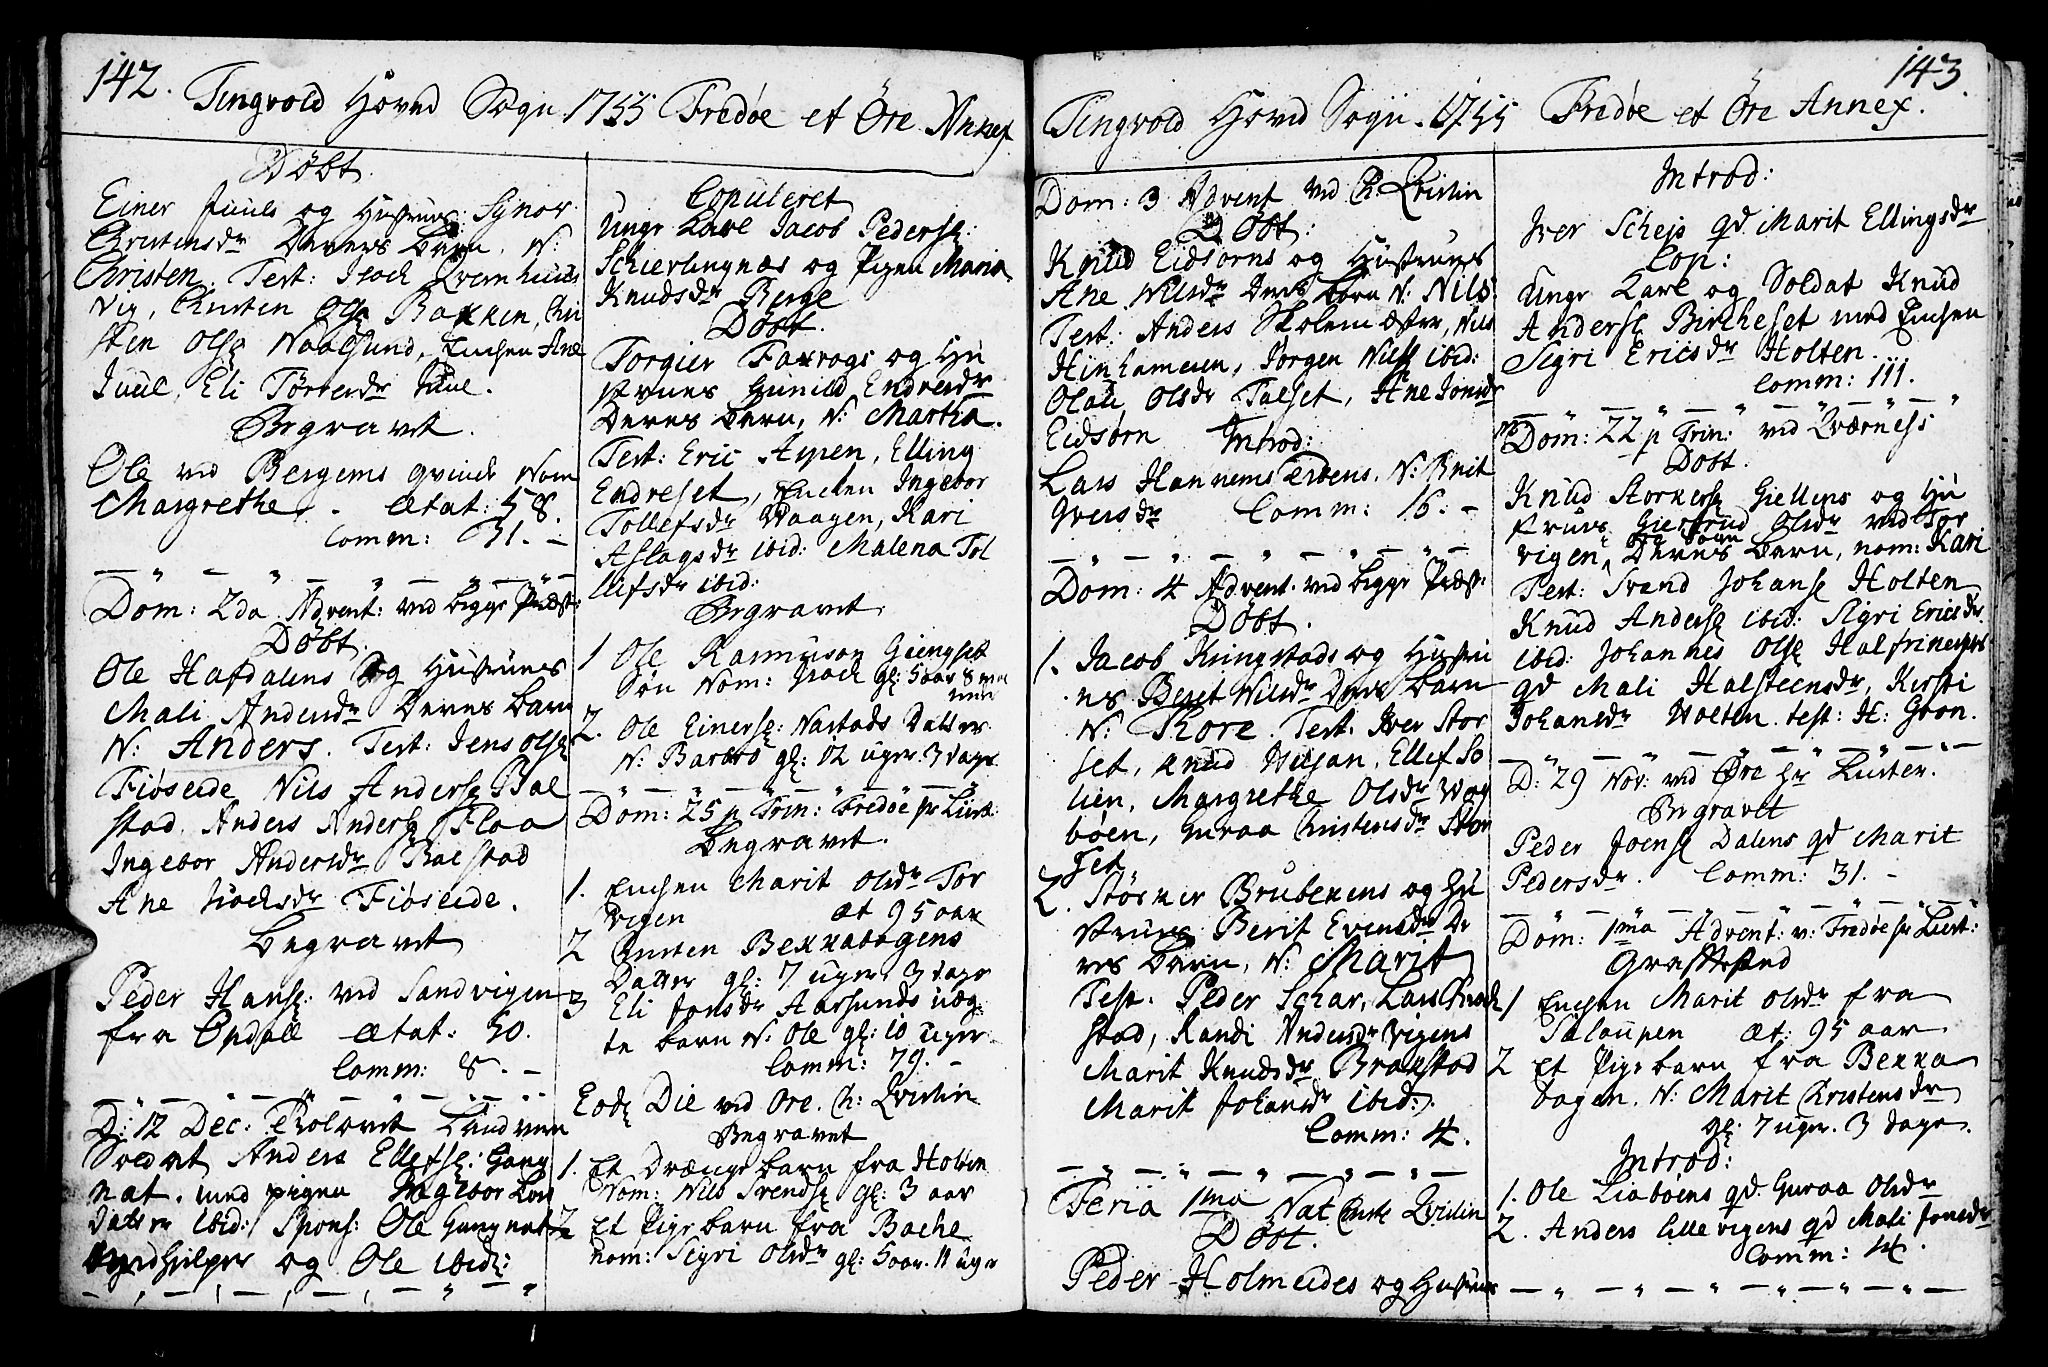 142. Tingvold Hoved Sogn 1755 Fredøe et Øre Annex
Døbt.
Einer Juuls og Hustrues Synor
Christensdr Deres Barn. N:
Christen. Test: Isach Qvernhuus
vig, Christen Olsen Bakken, Chri
sten Olsen Naalsund, Enchen Ane
Juul, Eli Torresdr Juul.
Begravet.
Ole ved Bergems qvinde Nom
Margrethe. Ætat: 58.
Comm: 31. -
Dom: 2da Advent: ved begge Præst:
Døbt.
Ole Hafdalens og Hustrues
Mali Andersdr Deres Barn
N: Anders. Test: Jens Olsen
Fiøseide Nils Andersen Bal
stad. Anders Andersen Flaa
Ingebor Andersdr Balstad
Ane Isachsdr Fiøseide.
Begravet
Peder Hansen: ved Sandvigen
fra Opdall Ætat: 50.
Comm: 8. -
D: 12 Dec: Trolovet Landvern
Soldat Anders Ellefsen: Gang
nat. med pigen Ingebor
Datter ibid: Spons: Ole Gangnat
og Ole ibid:
Copuleret
Unge Karl Jacob Pedersen:
Schierlingnæs og Pigen Maria
Knudsdr Berge
Døbt.
Torgier Foxrogs og Hu
strues Gunild Endresdr
Deres Barn, N: Martha.
Test: Eric Aspen, Elling
Endreset, Enchen Ingebor
Tollefsdr Waagen, Kari
Aslagsdr ibid: Malena Tol
llifsdr ibid:
Begravet
1 Ole Rasmuson Giengset
Søn Nom: Isach gl: 5 aar 8 maa
neder
2. Ole Einersen: Nastads Datter
N: Barbro gl: 12 uger 3 dage
Dom: 25 p Trin: Fredøe hr Lust:
Begravet.
1. Enchen Marit Olsdr Tor
vigen æt 95 aar
2 Christen Bekkabogens
Datter gl: 7 uger 3 dage
3 Eli Jonsdr Aarsunds uæg
te barn N: Ole gl: 10 uger
Comm: 79. -
Eod: Die ved Øre. Ch: Qvislin
Begravet
1. Et Drænge barn fra Holten
Nom: Nils Svendsen gl: 3 aar
2 Et Pige barn fra Bache
nom: Sigri Olsdr gl: 5 aar. 11 uger
143.
Tingvold Hoved Sogn. 1755 Fredøe et Øre Annex.
Dom: 3 Advent ved Ch: Qvislin
Døbt:
Knud Eidsørns og Hustrues
Ane Nilsdr Deres barn N: Nils
Test: Anders Skolemester, Nils
Hinhammeren, Jørgen Nilsen ibid:
Olava Olsdr Talset, Ane Jonsdr
Eidsørn Introd:
Lars Hannems N: Brit
Iversdr Comm: 16. -
Dom: 4 Advent. ved begge Præst:
Døbt.
1. Jacob Kringstads og Hustru
es Beret Nilsdr Deres barn
N: Thore. Test. Iver Stor
set, Knud Husan, Ellef So
lien, Margrethe Olsdr Wog
bøen, Guraa Christensdr Stor
set
2. Størker Brubekens og Hu
strues Berit Evensdr De
res barn, N: Marit
Test. Peder Schar, Lars Brech
stad, Randi Andersdr Vigens
Marit Knudsdr Brakstad
Marit Johansdr ibid:
Comm: 4.
Feria 1ma Nat Christi Qvislin
Døbt.
Peder Holmeides og Hustrues
Introd:
Iver Schejs qd. Marit Ellingsdr
Cop:
Unge Karl og Soldat Knud
Andersen Bircheset med Enchen
Sigri Ericsdr Holten.
Comm: 111.
Dom: 22 p Trin: ved Qværness
Døbt.
Knud Storkersen Giellens og Hu
strues Giertrud Olsdr ved Tor
vigen, Deres barn, nom: Kari
Test: Svend Johansen Holten
Knud Andersen ibid: Sigri Ericsdr
ibid: Johannes Olsen Halfrinesets
qd Mali Halsteensdr, Kersti
Johansdr Holten. test: H: Gron.
D: 29 Nov: ved Øre hr Luster.
Begravet
Peder Joensen Dalens qd Marit
Pedersdr. Comm: 31. -
Dom: 1ma Advent: v: Fredøe hr Lust:
Graffæsted
1 Enchen Marit Olsdr fra
Saloupen æt: 95 aar
2 Et Pige barn fra Bekka
bogen. N: Marit Christensdr
gl: 7 uger. 3 dage.
Introd:
1. Ole Liabøens qd. Guraa Olsdr
2. Anders Lillevigens qd Mali Jonsdr
Comm: 14.